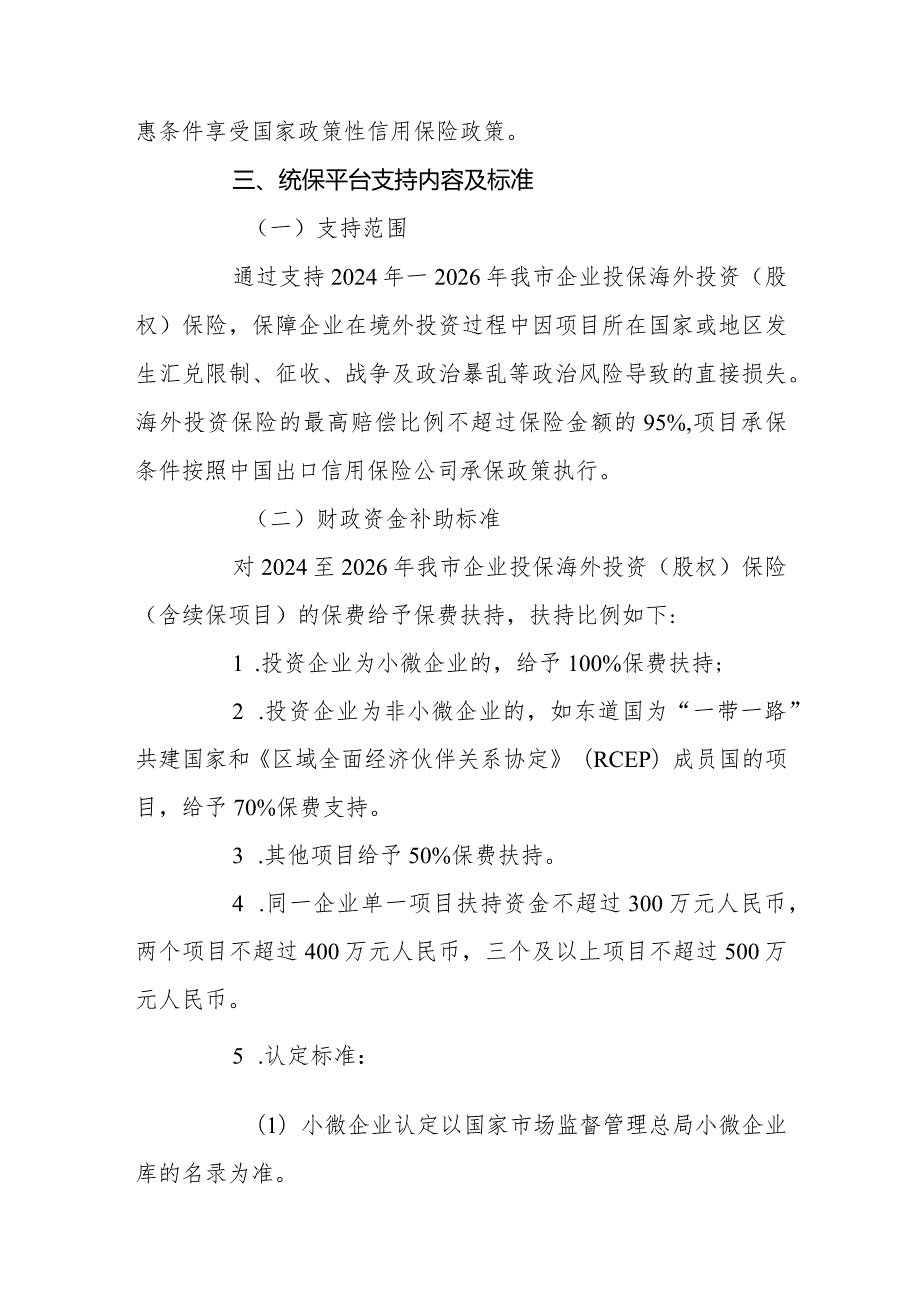 惠条件享受国家政策性信用保险政策。
三、统保平台支持内容及标准
（一）支持范围
通过支持 2024 年一 2026 年我市企业投保海外投资（股
权）保险，保障企业在境外投资过程中因项目所在国家或地区发
生汇兑限制、征收、战争及政治暴乱等政治风险导致的直接损失。
海外投资保险的最高赔偿比例不超过保险金额的 95%,项目承保
条件按照中国出口信用保险公司承保政策执行。
（二）财政资金补助标准
对 2024 至 2026 年我市企业投保海外投资（股权）保险
（含续保项目）的保费给予保费扶持，扶持比例如下：
1 .投资企业为小微企业的，给予 100%保费扶持；
2 .投资企业为非小微企业的，如东道国为“一带一路”
共建国家和《区域全面经济伙伴关系协定》（RCEP）成员国的项
目，给予 70%保费支持。
3 .其他项目给予 50%保费扶持。
4 .同一企业单一项目扶持资金不超过 300 万元人民币，
两个项目不超过 400 万元人民币，三个及以上项目不超过 500 万
元人民币。
5 .认定标准：
（1）小微企业认定以国家市场监督管理总局小微企业
库的名录为准。